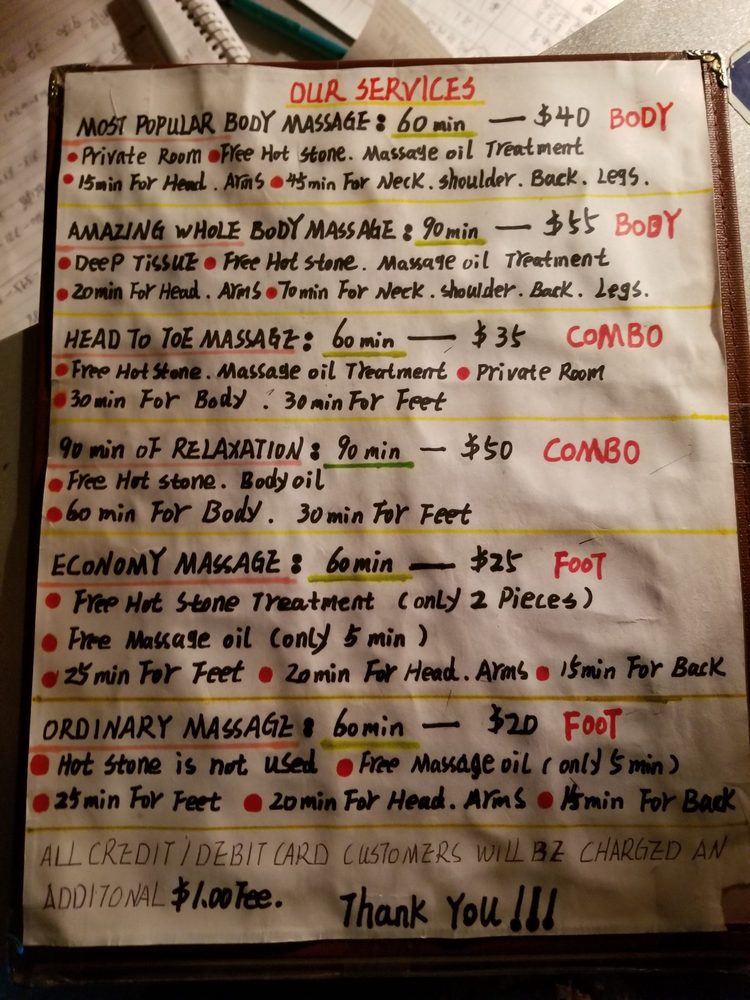 OUR SERVICES
MOST POPULAR BODY MASSAGE: 60 min — $40 BODY
• Private Room • Free Hot stone. Massage oil Treatment
• 15min For Head. Arms • 45min For Neck. shoulder. Back. Legs.
AMAZING WHOLE BODY MASSAGE: 90min — $55 BODY
• DeeP TissuE • Free Hot stone. Massage oil Treatment
• 20min For Head. Arms • 70min For Neck. shoulder. Back. Legs.
HEAD TO TOE MASSAGE: 60min — $35 COMBO
• Free Hot Stone. Massage oil Treatment • Private Room
• 30min For Body . 30min For Feet
90 min OF RELAXATION: 90 min — $50 COMBO
• Free Hot stone. Body oil
• 60 min For Body. 30min For Feet
ECONOMY MASSAGE: 60min — $25 FOOT
• Free Hot Stone Treatment (only 2 Pieces)
• Free Massage oil (only 5 min)
• 25min For Feet • 20min For Head. Arms • 15min For Back
ORDINARY MASSAGE: 60min — $20 FOOT
• Hot Stone is not used • Free Massage oil (only 5min)
• 25min For Feet • 20min For Head. Arms • 15min For Back
ALL CREDIT/DEBIT CARD CUSTOMERS WILL BE CHARGED AN
ADDITONAL $1.00 Fee. Thank You!!!